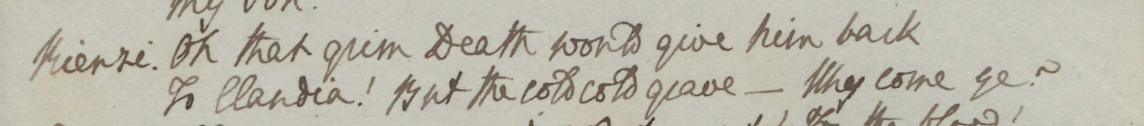 my son.
Rienzi. Oh that grim Death would give him back
To Claudia! But the cold cold grave — Why come ye?
the blood!